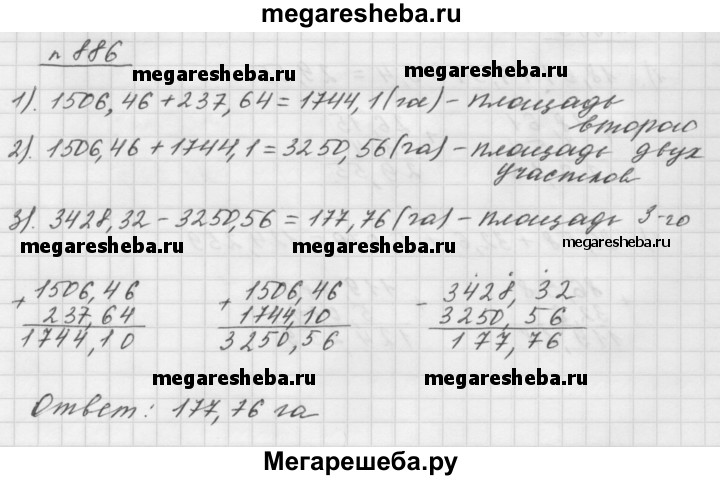 megaresheba.ru
№ 886
megaresheba.ru megaresheba.ru
1). 1506,46 + 237,64 = 1744,1 (га) - площадь
второго
2). 1506,46 + 1744,1 = 3250,56 (га) - площадь двух
участков
3). 3428,32 - 3250,56 = 177,76 (га) - площадь 3-го
megaresheba.ru megaresheba.ru megaresheba.ru
+ 1506,46 + 1506,46 - 3428,32
237,64 1744,10 3250,56
1744,10 3250,56 177,76
megaresheba.ru megaresheba.ru
Ответ: 177,76 га
Мегарешеба.ру